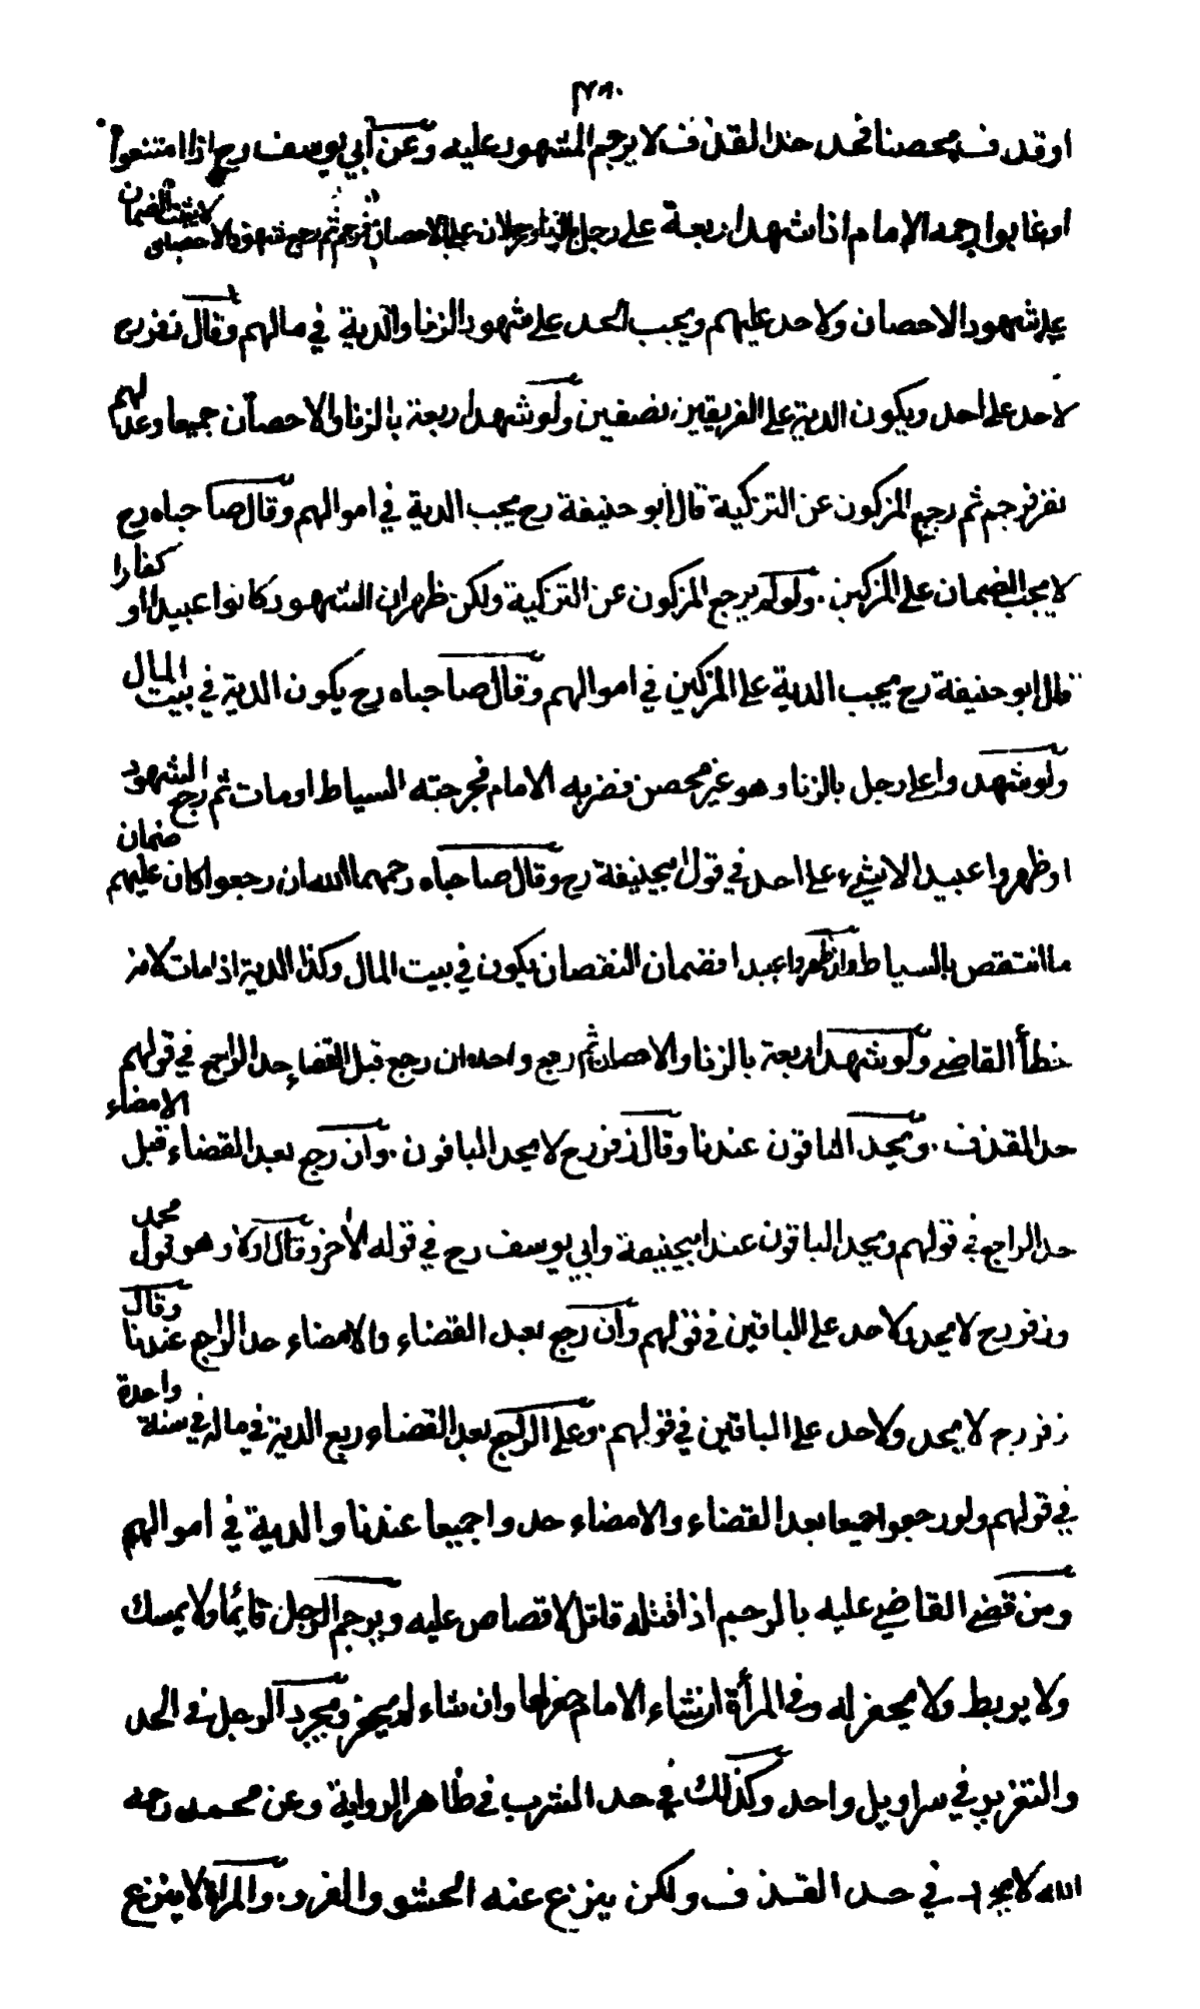 ٢٨٠
او قذف محصنا فحد حد القذف لا يرجم المشهود عليه وعن ابي يوسف رح اذا امتنعوا
او غابوا رجمه الامام اذا شهد اربعة على رجل بالزنا ورجلان على الاحصان فرجم ثم رجع شهود الاحصان لا يثبت الضمان
على شهود الاحصان ولا حد عليهم ويجب الحد على شهود الزنا والدية في مالهم وقال زفر رح
لاحد على احد ويكون الدية على الفريقين نصفين ولو شهد اربعة بالزنا والاحصان جميعا وعدلهم
نفر فرجم ثم رجع المزكون عن التزكية قال ابو حنيفة رح يجب الدية في اموالهم وقال صاحباه رح
لا يجب الضمان على المزكين . ولو لم يرجع المزكون عن التزكية ولكن ظهر ان الشهود كانوا عبيدا او كفارا
قال ابو حنيفة رح يجب الدية على المزكين في اموالهم وقال صاحباه رح يكون الدية في بيت المال
ولو شهدوا على رجل بالزنا وهو غير محصن فضربه الامام فجرحته السياط او مات ثم رجع الشهود
او ظهروا عبيدا لا شيء على احد في قول ابيحنيفة رح وقال صاحباه رحمهما الله ان رجعوا كان عليهم ضمان
ما انتقص بالسياط وان ظهروا عبيدا فضمان النقصان يكون في بيت المال وكذا الدية اذا مات لانه من
خطأ القاضي ولو شهد اربعة بالزنا والاحصان ثم رجع واحد ان رجع قبل القضاء حد الراجع في قولهم
حد القذف . ويحد الباقون عندنا وقال زفر رح لا يحد الباقون . وان رجع بعد القضاء قبل الامضاء
حد الراجع في قولهم ويحد الباقون عند ابيحنيفة وابي يوسف رح في قوله الآخر وقال اولا وهو قول محمد
وزفر رح لا يحد ولا حد على الباقين في قولهم وان رجع بعد القضاء والامضاء حد الراجع عندنا وقال
زفر رح لا يحد ولا حد على الباقين في قولهم . وعلى الراجع بعد القضاء ربع الدية في ماله في سنة واحدة
في قولهم ولو رجعوا جميعا بعد القضاء والامضاء حدوا جميعا عندنا والدية في اموالهم
ومن قضى القاضي عليه بالرجم اذا قتله قاتل لا قصاص عليه ويرجم الرجل قائما ولا يمسك
ولا يربط ولا يحفر له وفي المرأة ان شاء الامام حفر لها وان شاء لم يحفر ويجرد الرجل في الحد
والتعزير في سراويل واحد وكذلك في حد الشرب في ظاهر الرواية وعن محمد رحمه
الله لا يجرد في حد القذف ولكن ينزع عنه الحشو والفرو . والمرأة لا ينزع